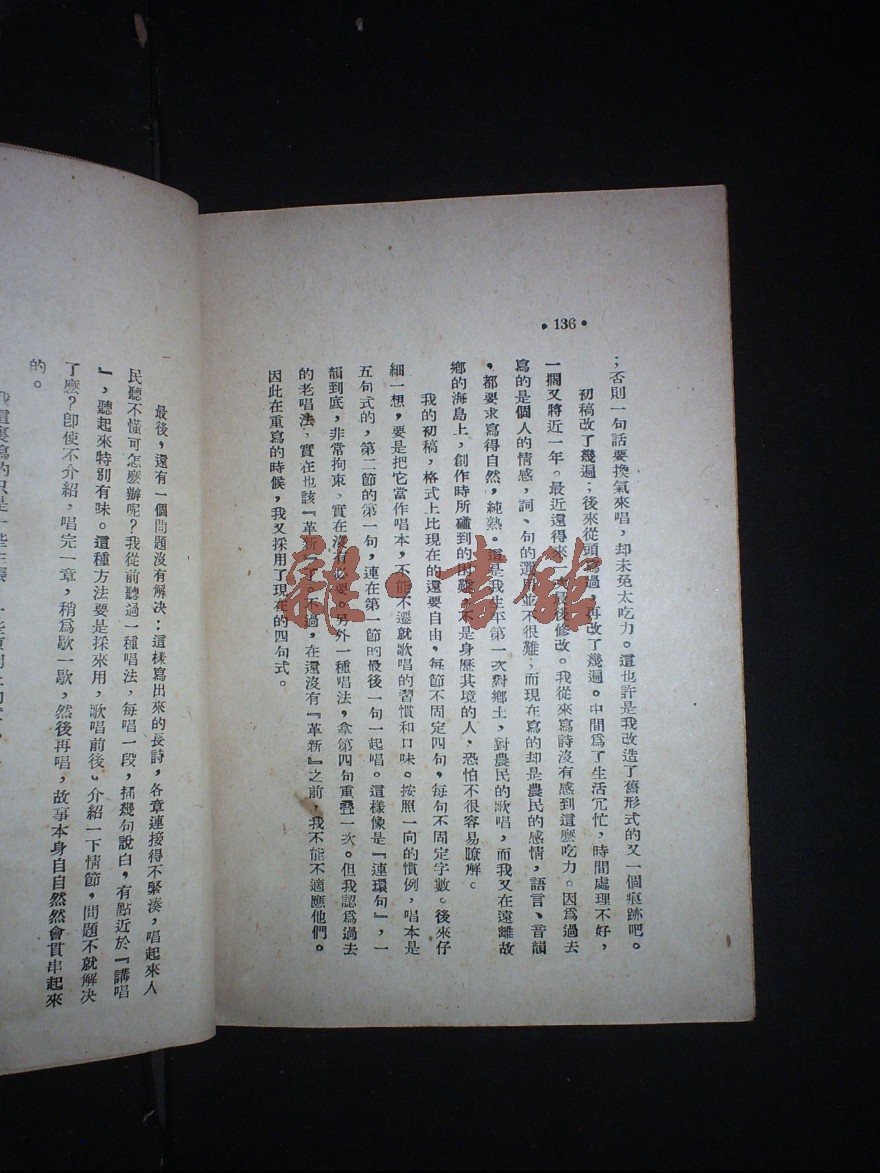 •136•
；否則一句話要換氣來唱，却未免太吃力。這也許是我改造了舊形式的又一個痕跡吧。
初稿改了幾遍；後來從頭寫過，再改了幾遍。中間爲了生活冗忙，時間處理不好，
一擱又將近一年。最近還得來 最後修改。我從來寫詩沒有感到這麽吃力。因爲過去
寫的是個人的情感，詞、句的選用並不很難；而現在寫的却是農民的感情，語言、音韻
，都要求寫得自然，純熟。這是我生平第一次對鄉土，對農民的歌唱，而我又在遠離故
鄉的海島上，創作時所碰到的困難，不是身歷其境的人，恐怕不很容易瞭解。
我的初稿，格式上比現在的還要自由，每節不固定四句，每句不固定字數。後來仔
細一想，要是把它當作唱本，不能不遷就歌唱的習慣和口味。按照一向的慣例，唱本是
五句式的，第二節的第一句，連在第一節的最後一句一起唱。這樣像是『連環句』，一
韻到底，非常拘束，實在沒有必要。另外一種唱法，拿第四句重疊一次。但我認爲過去
的老唱法，實在也該『革新』了。不過，在還沒有『革新』之前，我不能不適應他們。
因此在重寫的時候，我又採用了現在的四句式。
最後，還有一個問題沒有解决：這樣寫出來的長詩，各章連接得不緊湊，唱起來人
民聽不懂可怎麽辦呢？我從前聽過一種唱法，每唱一段，插幾句說白，有點近於『講唱
』，聽起來特別有味。這種方法要是採來用，歌唱前後，介紹一下情節，問題不就解决
了麽？卽使不介紹，唱完一章，稍爲歇一歇，然後再唱，故事本身自自然然會貫串起來
的。
我這裏寫的只是一些
雜·書館